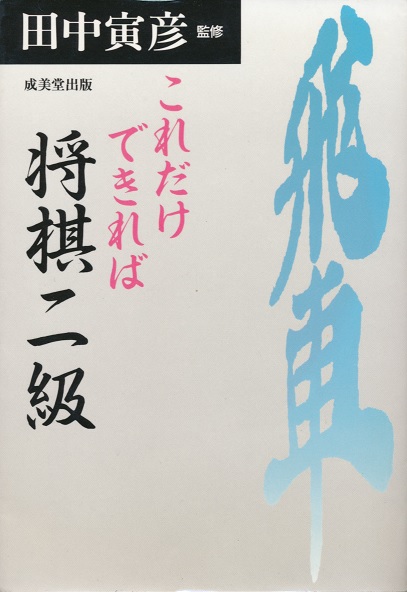 田中寅彦 監修
成美堂出版
飛車
これだけ
できれば
将棋二級